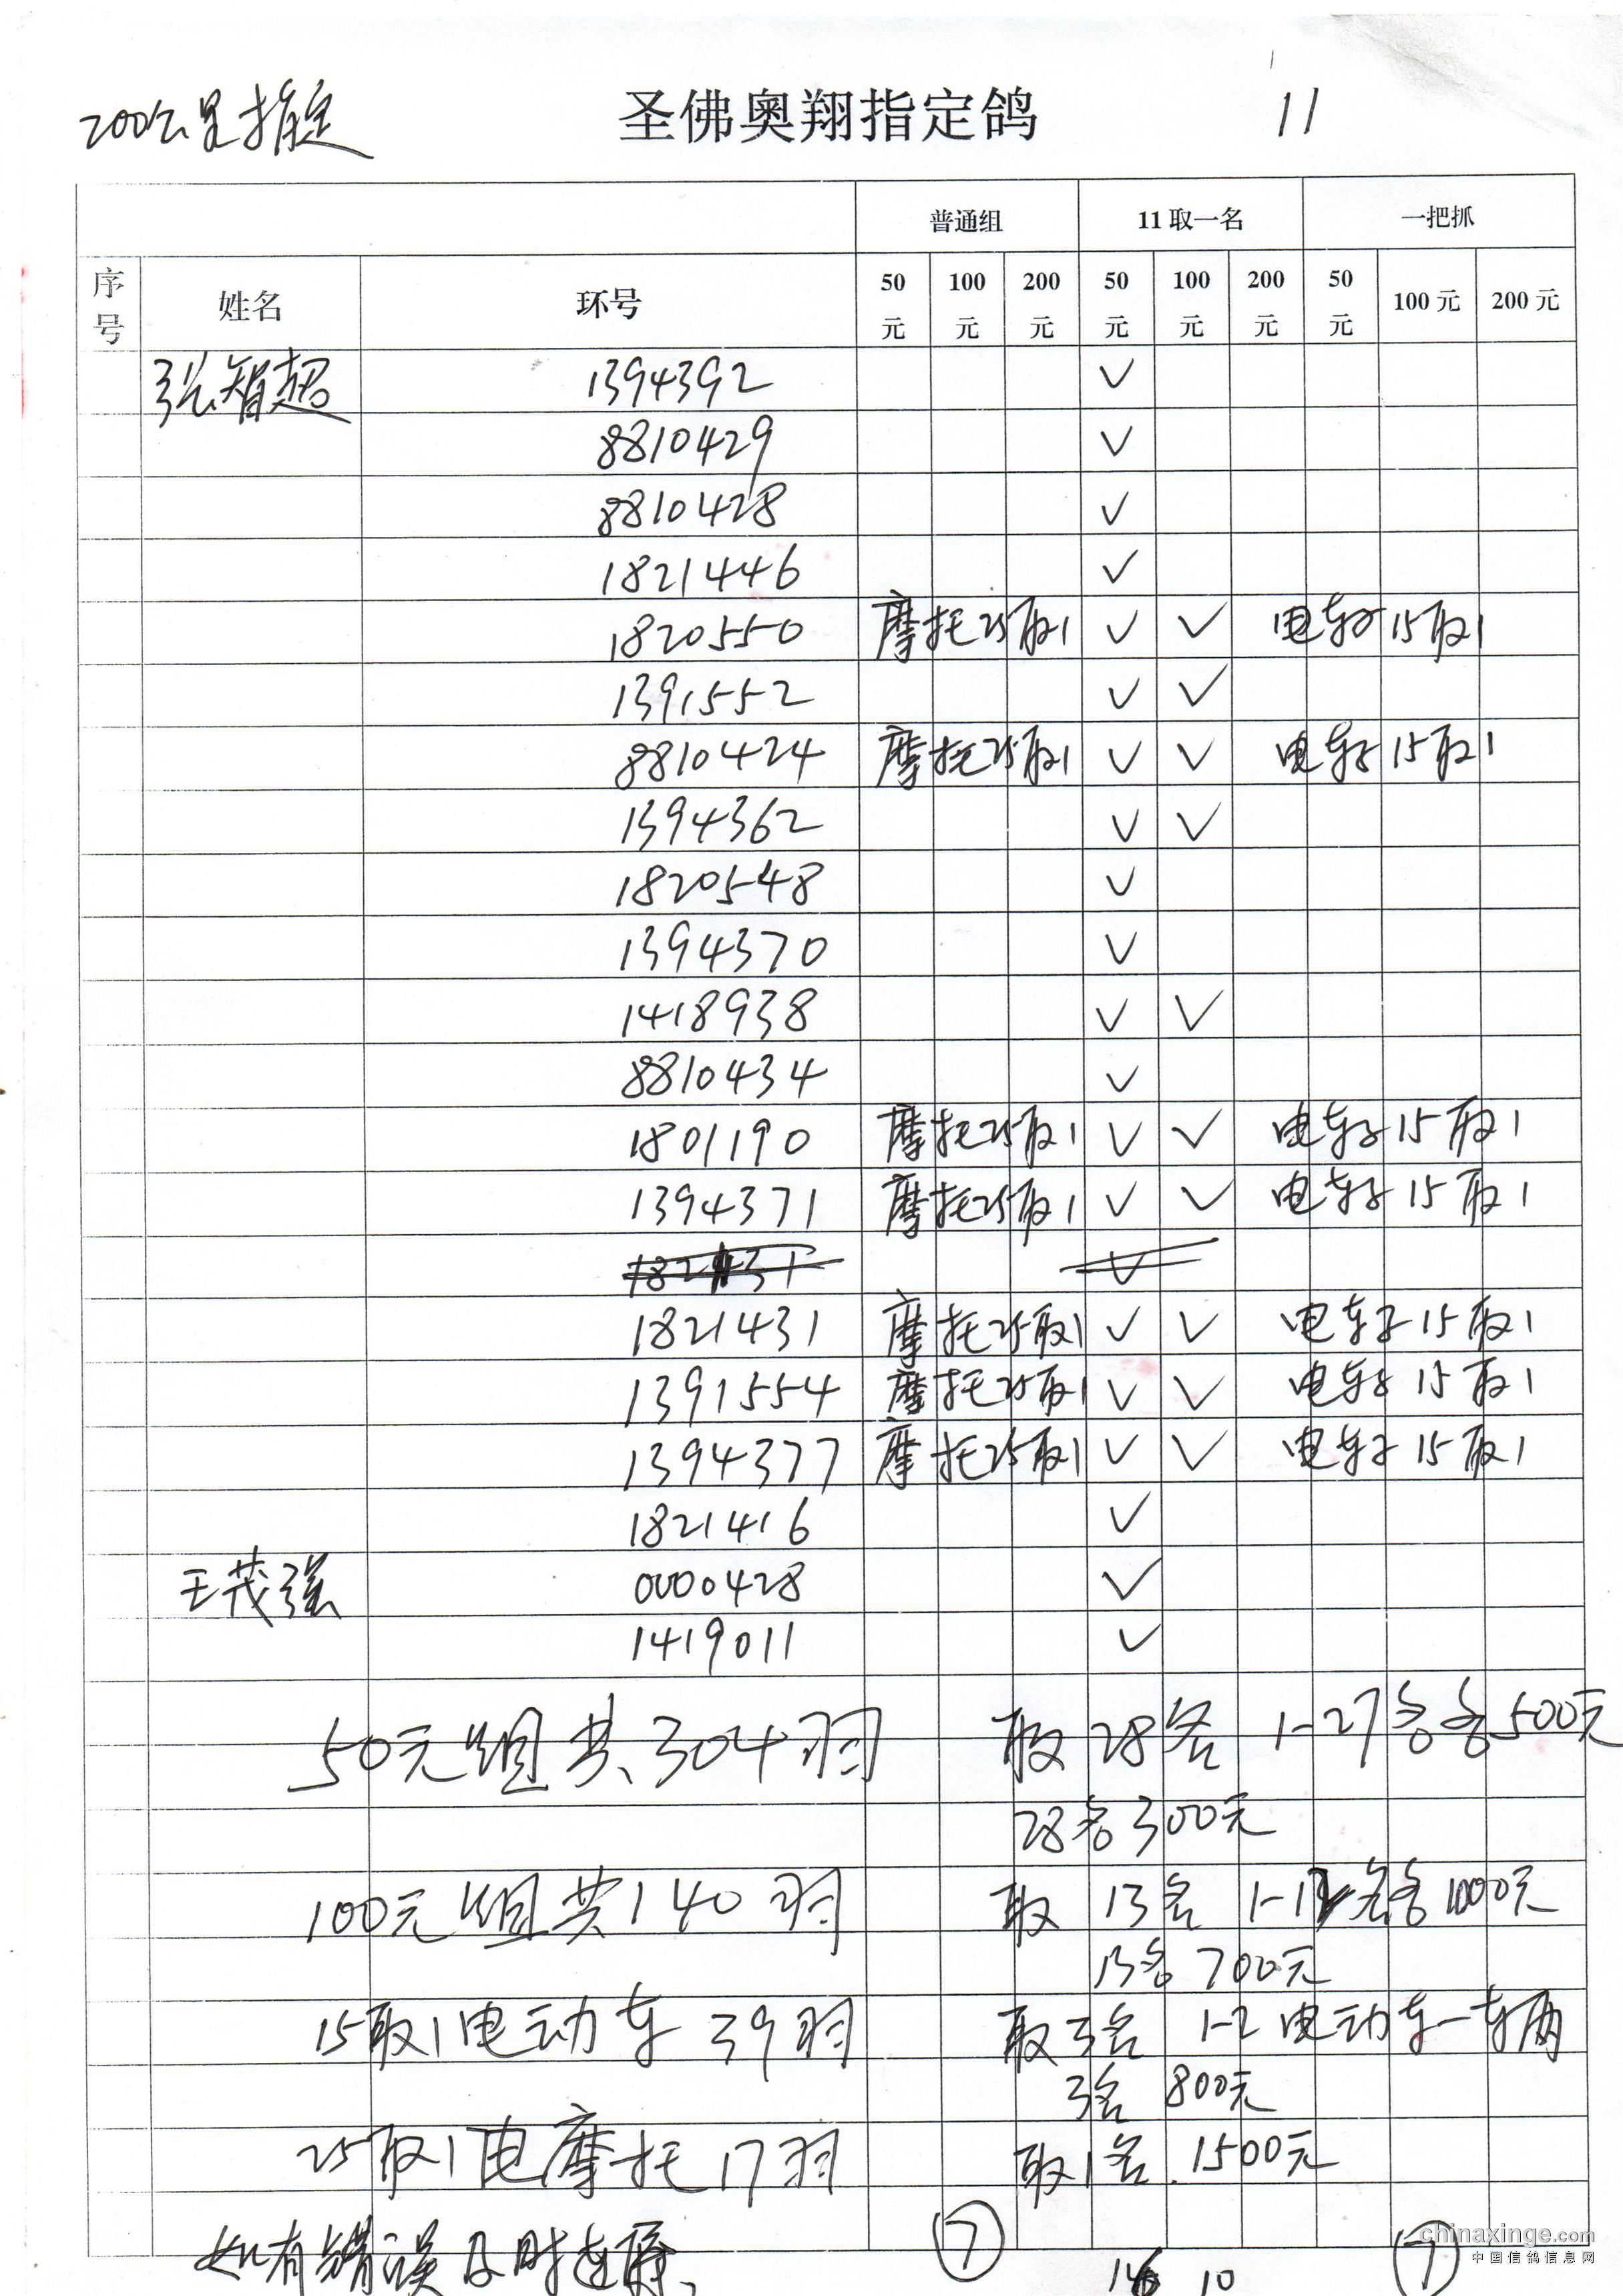 200公里指定 圣佛奥翔指定鸽 11
普通组 11取一名 一把抓
序号 姓名 环号 50元 100元 200元 50元 100元 200元 50元 100元 200元
张智超 1394392 ✓
8810429 ✓
8810428 ✓
1821446 ✓
1820550 摩托25取1 ✓ ✓ 电车子15取1
1391552 ✓ ✓
8810424 摩托25取1 ✓ ✓ 电车子15取1
1394362 ✓ ✓
1820548 ✓
1394370 ✓
1418938 ✓ ✓
8810434 ✓
1801190 摩托25取1 ✓ ✓ 电车子15取1
1394371 摩托25取1 ✓ ✓ 电车子15取1
1821431 摩托25取1 ✓ ✓ 电车子15取1
1391554 摩托25取1 ✓ ✓ 电车子15取1
1394377 摩托25取1 ✓ ✓ 电车子15取1
1821416 ✓
王茂强 0000428 ✓
1419011 ✓
50元组共304羽 取28名 1-27名各500元
28名300元
100元组共140羽 取13名 1-12名各1000元
13名700元
15取1电动车39羽 取3名 1-2电动车一车两
3名 800元
25取1电摩托17羽 取1名.1500元
如有错误及时
7 10 7
chinaxinge.com
中国信鸽信息网